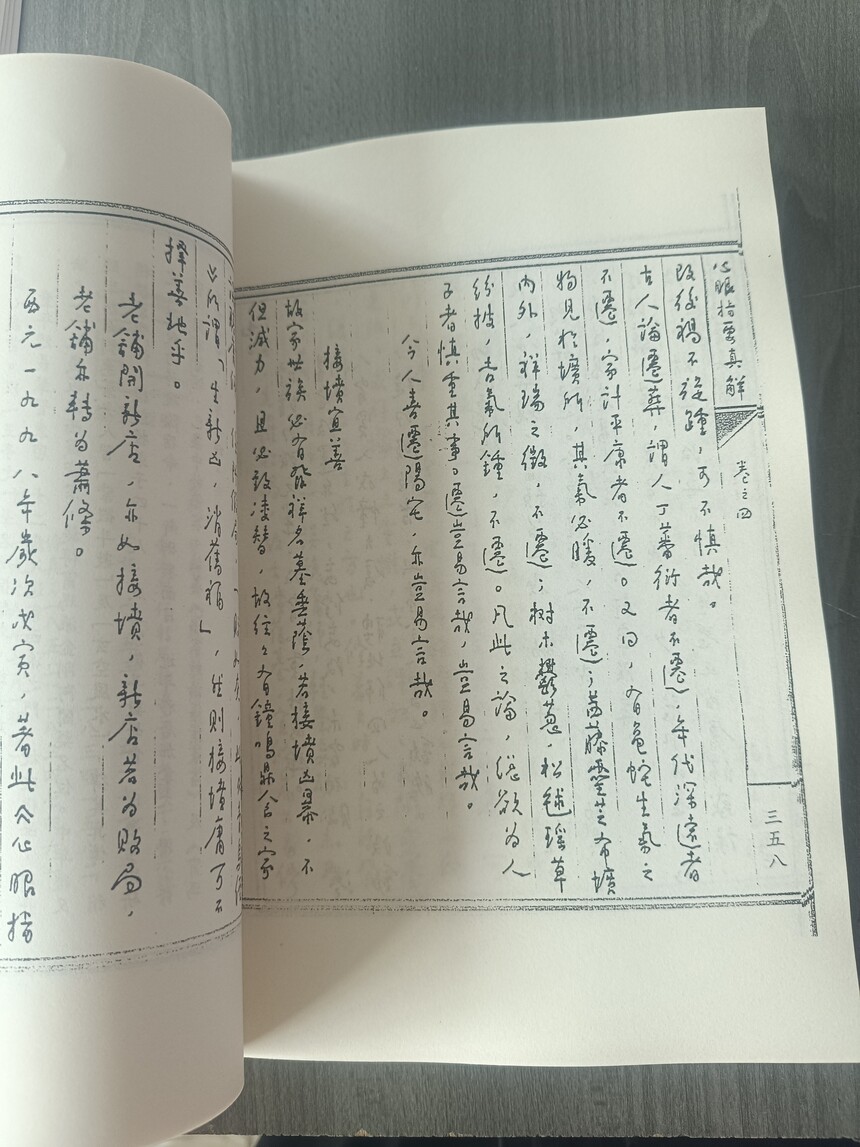 心眼指要真解
卷之四
三五八
改後禍不旋踵，可不慎哉。
古人論遷葬，謂人丁蕃衍者不遷，年代深遠者
不遷，家計平康者不遷。又曰，有龜蛇生氣之
物見於壙所，其氣必暖，不遷；藤之布壙
內外，祥瑞之徵，不遷；树木鬱蔥，松毬瑶草
紛披，吉氣所鍾，不遷。凡此之論，總欲為人
子者慎重其事。遷豈易言哉，豈易言哉。
今人喜遷陽宅，亦豈易言哉。
接墳宜善
故家世族必有發祥名墓垂蔭，若接墳凶暴，不
但減力，且必致凌替，故往々有鐘鳴鼎食之家
所謂「生新凶，消舊福」，然則接墳庸可不
擇善地乎。
老舖開新店，亦如接墳，新店若為敗局，
老舖亦轉為蕭條。
西元一九九八年歲次戊寅，著此心眼指